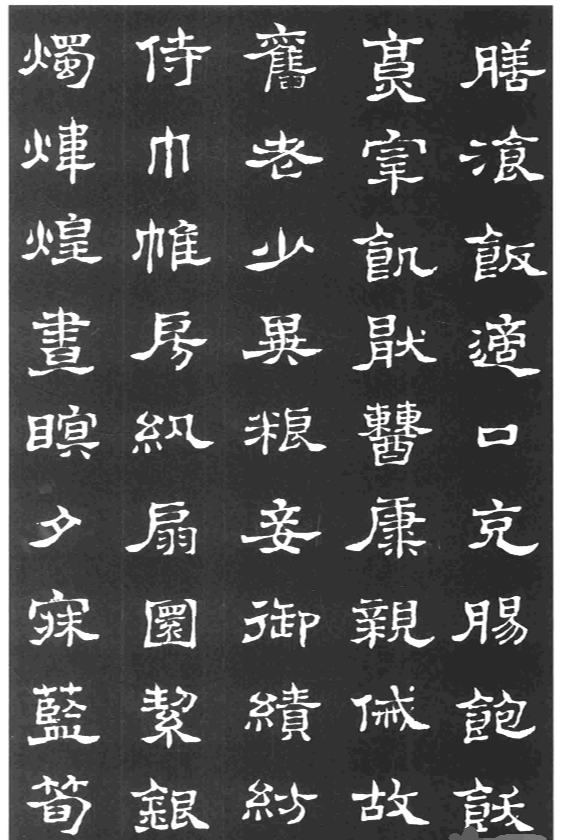 膳飡飯適口充腸飽飫
烹宰飢猒糟康親傶故
舊老少異粮妾御績紡
侍巾帷房紈扇圓絜銀
燭煒煌晝瞑夕寐藍筍